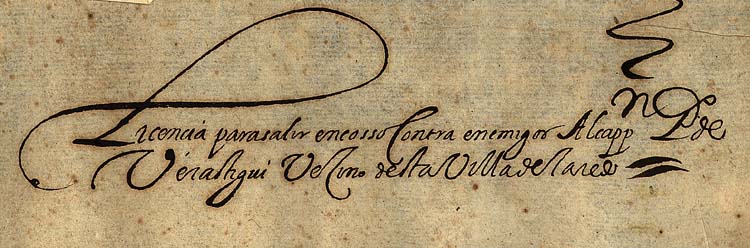 Licencia para salir en cosso Contra enemigos Al capp n P de
Verastigui Vezino desta Villa de laredo